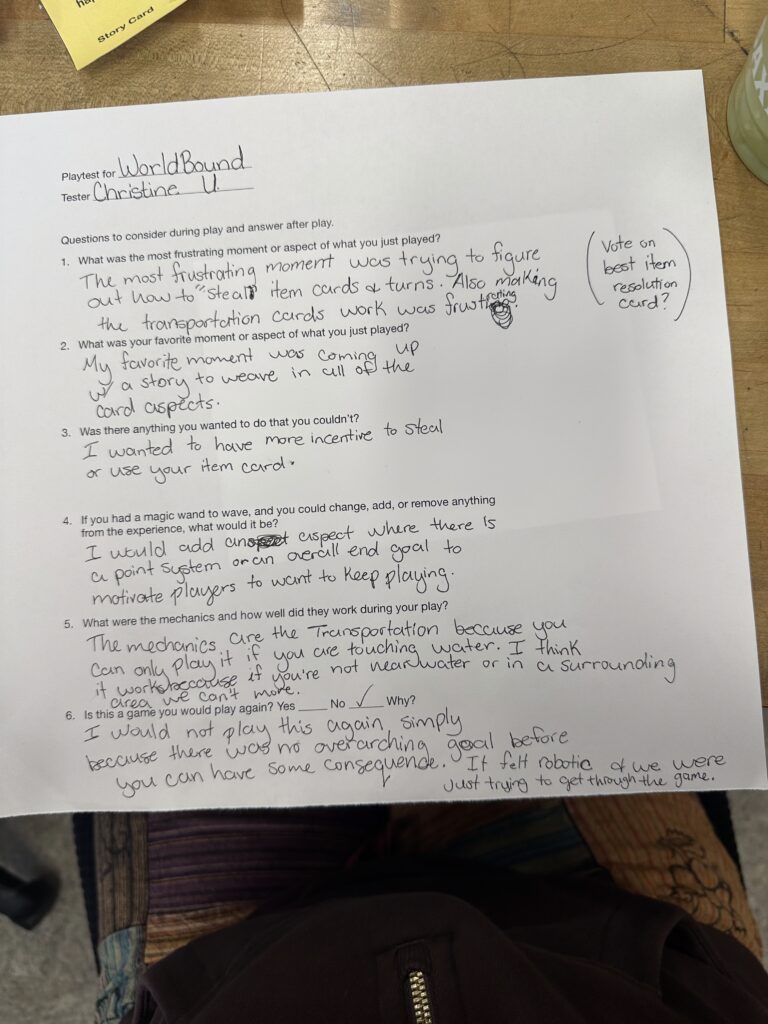 Story Card
Playtest for WorldBound
Tester Christine U.
Questions to consider during play and answer after play.
1. What was the most frustrating moment or aspect of what you just played?
The most frustrating moment was trying to figure
out how to "steal" item cards & turns. Also making
the transportation cards work was frustrating.
(Vote on
best item
resolution
card?)
2. What was your favorite moment or aspect of what you just played?
My favorite moment was coming up
w/ a story to weave in all of the
card aspects.
3. Was there anything you wanted to do that you couldn't?
I wanted to have more incentive to steal
or use your item card.
4. If you had a magic wand to wave, and you could change, add, or remove anything
from the experience, what would it be?
I would add an aspect where there is
a point system or an overall end goal to
motivate players to want to keep playing.
5. What were the mechanics and how well did they work during your play?
The mechanics are the Transportation because you
can only play it if you are touching water. I think
it works because if you're not near water or in a surrounding
area we can't move.
6. Is this a game you would play again? Yes ____ No _✓_ Why?
I would not play this again simply
because there was no overarching goal before
you can have some consequence. It felt robotic & we were
just trying to get through the game.